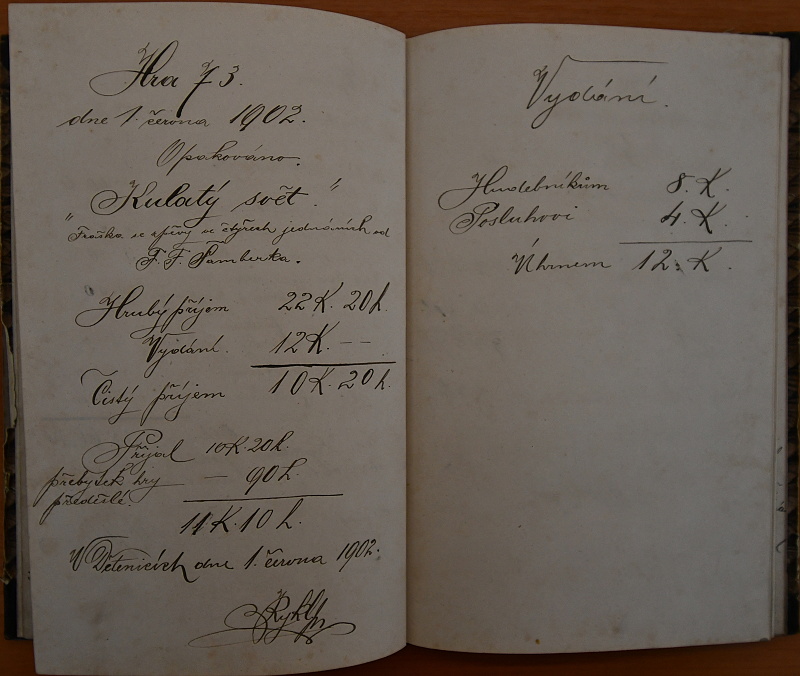 Hra 73.
dne 1. června 1902.
Opakováno.
„Kulatý svět."
Fraška se zpěvy ve čtyřech jednáních od
F. F. Šamberka.
Hrubý příjem 22K. 20h.
Vydání. 12K. — — .
Čistý příjem 10K. 20h.
Přijal 10K. 20h.
přebytek hry — 90h.
předešlé.
11K. 10h.
V Detenicích dne 1. června 1902.
Vydání.
Hudebníkům 8. K.
Posluhovi 4. K.
Úhrnem 12. K.